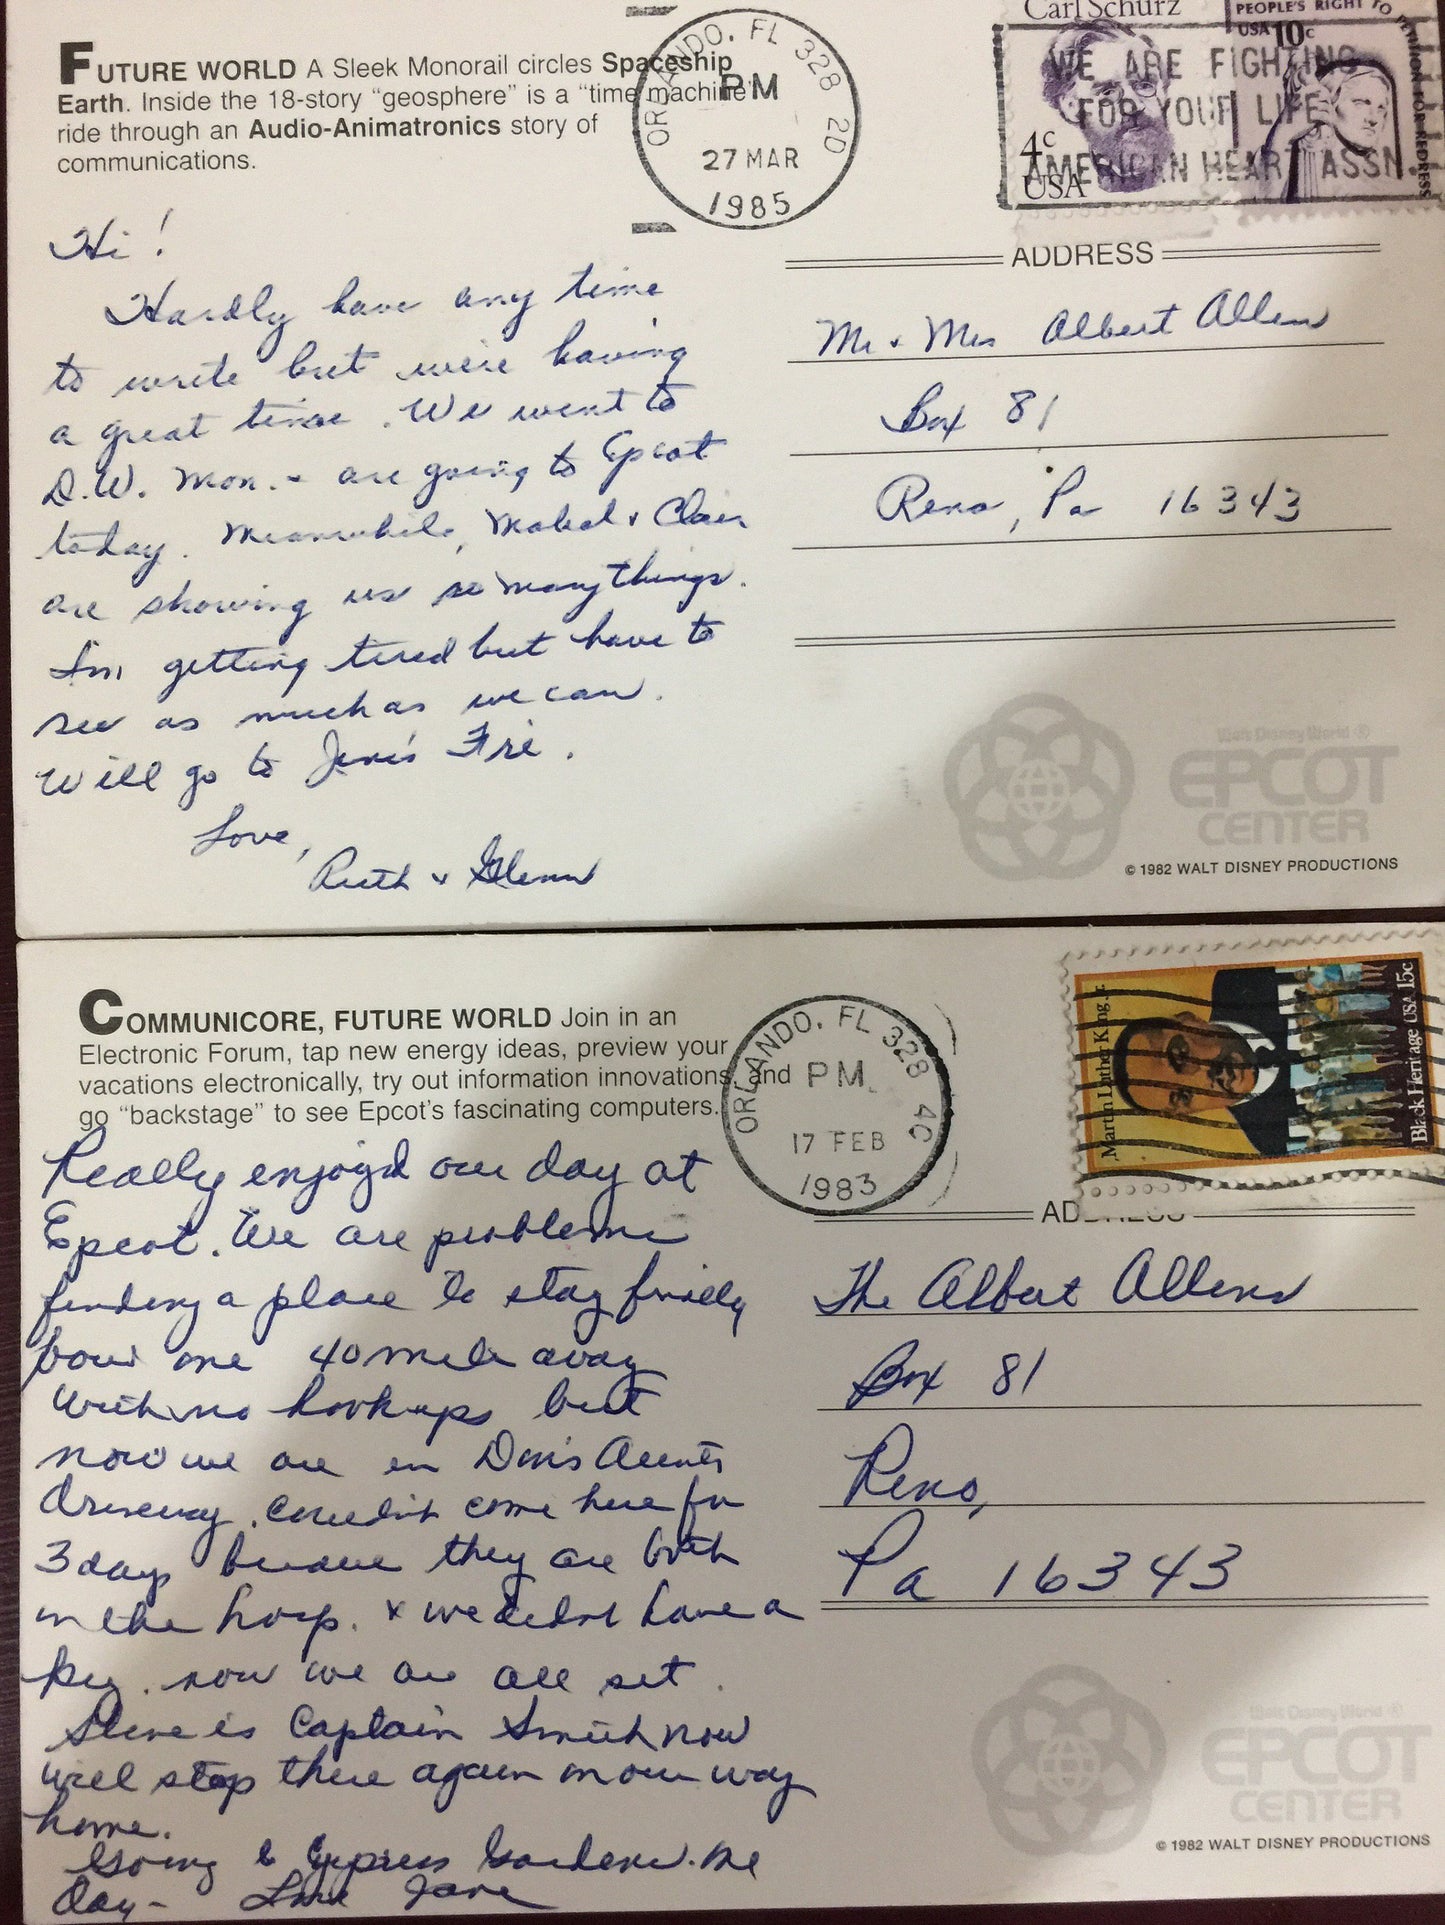 FUTURE WORLD A Sleek Monorail circles Spaceship
Earth. Inside the 18-story "geosphere" is a "time machine"
ride through an Audio-Animatronics story of
communications.
ORLANDO, FL 328 2D
PM
27 MAR
1985
Carl Schurz
4c
USA
PEOPLE'S RIGHT TO PETITION FOR REDRESS
USA 10c
WE ARE FIGHTING
FOR YOUR LIFE
AMERICAN HEART ASSN.
Hi!
Hardly have any time
to write but we're having
a great time. We went to
D.W. Mon. + are going to Epcot
today. Meanwhile, Mabel + Clair
are showing us so many things.
I'm getting tired but have to
see as much as we can.
Will go to Jane's Fri.
Love,
Ruth + Glenn
ADDRESS
Mr + Mrs Albert Allen
Box 81
Reno, Pa 16343
Walt Disney World ®
EPCOT
CENTER
© 1982 WALT DISNEY PRODUCTIONS
COMMUNICORE, FUTURE WORLD Join in an
Electronic Forum, tap new energy ideas, preview your
vacations electronically, try out information innovations, and
go "backstage" to see Epcot's fascinating computers.
ORLANDO, FL 328 4C
PM
17 FEB
1983
Martin Luther King, Jr.
Black Heritage USA 15c
Really enjoyed our day at
Epcot. We are problems
finding a place to stay finally
one 40 mile away
with no hookups but
now we are in Don's Aunts
driveway. Couldn't come here for
3 days because they are both
in the hosp. + we didn't have a
key. now we are all set.
Steve is Captain Smith now
will stop there again on our way
home.
Going to Cypress Gardens. one
day - Love Jane
ADDRESS
The Albert Allens
Box 81
Reno,
Pa 16343
Walt Disney World ®
EPCOT
CENTER
© 1982 WALT DISNEY PRODUCTIONS